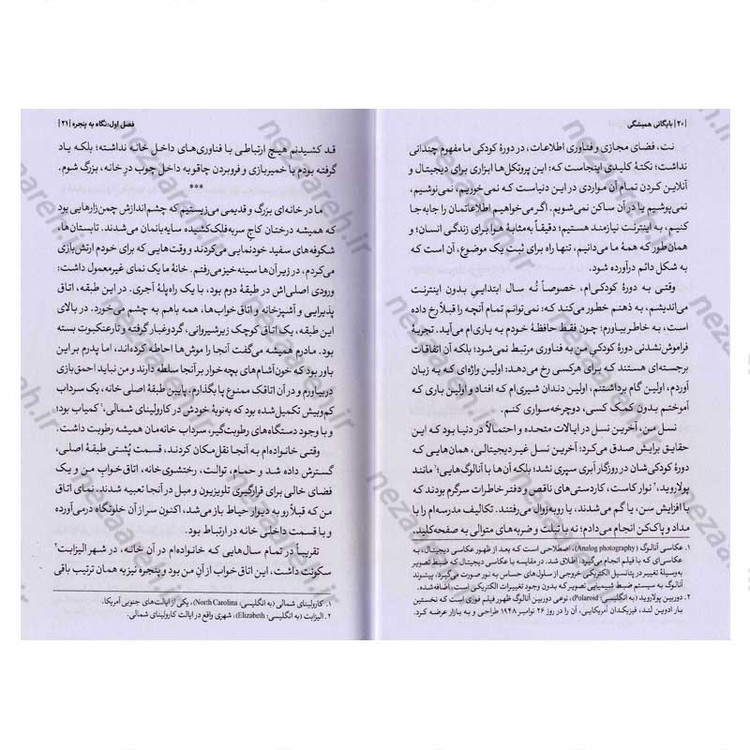 | ۲۰ | بایگانی همیشگی
نت، فضای مجازی و فناوری اطلاعات، در دورهٔ کودکی ما مفهوم چندانی
نداشت؛ نکتهٔ کلیدی اینجاست که: این پروتکل‌ها ابزاری برای دیجیتال و
آنلاین کردن تمام آن مواردی در این دنیاست که نمی‌خوریم، نمی‌نوشیم،
نمی‌پوشیم یا در آن ساکن نمی‌شویم. اگر می‌خواهیم اطلاعاتمان را جابه‌جا
کنیم، به اینترنت نیازمند هستیم؛ دقیقاً به‌مثابهٔ هوا برای زندگی انسان؛ و
همان‌طور که همهٔ ما می‌دانیم، تنها راه برای ثبت یک موضوع، آن است که
به شکل دائم درآورده شود.
وقتی به دورهٔ کودکی‌ام، خصوصاً نُه سال ابتدایی بدون اینترنت
می‌اندیشم، به ذهنم خطور می‌کند که: نمی‌توانم تمام آنچه را قبلاً رخ داده
است، به خاطر بیاورم؛ چون فقط حافظهٔ خودم به یاری‌ام می‌آید. تجربهٔ
فراموش‌نشدنی دورهٔ کودکی من به فناوری مرتبط نمی‌شود؛ بلکه آن اتفاقات
برجسته‌ای هستند که برای هرکسی رخ می‌دهد: اولین واژه‌ای که به زبان
آوردم، اولین گام برداشتنم، اولین دندان شیری‌ام که افتاد و اولین باری که
آموختم بدون کمک کسی، دوچرخه‌سواری کنم.
نسل من، آخرین نسل در ایالات متحده و احتمالاً در دنیا بود که این
حقایق برایش صدق می‌کرد: آخرین نسل غیردیجیتالی، همان‌هایی که
دورهٔ کودکی‌شان در روزگار آبری سپری نشد؛ بلکه آن‌ها با آنالوگ‌هایی۱ مانند
پولاروید،۲ نوار کاست، کاردستی‌های ناقص و دفتر خاطرات سرگرم بودند که
با افزایش سن، یا گم می‌شدند، یا روبه‌زوال می‌رفتند. تکالیف مدرسه‌ام را با
مداد و پاک‌کن انجام می‌دادم؛ نه با تبلت و ضربه‌های متوالی به صفحه‌کلید.
۱. عکاسی آنالوگ (Analog photography)، اصطلاحی است که بعد از ظهور عکاسی دیجیتال، به
عکاسی‌ای که با فیلم انجام می‌گیرد؛ اطلاق شد. در مقایسه با عکاسی دیجیتال که ضبط تصویر
به‌وسیلهٔ تغییر در پتانسیل الکتریکی خروجی از سلول‌های حساس به نور صورت می‌گیرد، پیشوند
آنالوگ به سیستم ضبط شیمیایی تصویر که بدون وجود تغییرات الکتریکی است، اضافه‌شده.
۲. دوربین پولاروید (به انگلیسی: Polaroid)، نوعی دوربین آنالوگ ظهور فیلم فوری است که نخستین
بار ادوین لند، فیزیکدان آمریکایی، آن را در روز ۲۶ نوامبر ۱۹۴۸ طراحی و به بازار عرضه کرد.
فصل اول: نگاه به پنجره | ۲۱ |
قد کشیدنم هیچ ارتباطی با فناوری‌های داخل خانه نداشته؛ بلکه یاد
گرفته بودم با خمیربازی و فروبردن چاقو به داخل چوب درِ خانه، بزرگ شوم.
***
ما در خانه‌ای بزرگ و قدیمی می‌زیستیم که چشم‌اندازش چمن‌زارهایی بود
که همیشه درختان کاجِ سربه‌فلک‌کشیده سایه‌بانمان می‌شدند. تابستان‌ها،
شکوفه‌های سفید خودنمایی می‌کردند و وقت‌هایی که برای خودم ارتش‌بازی
می‌کردم، در زیر آن‌ها سینه‌خیز می‌رفتم. خانهٔ ما یک نمای غیرمعمول داشت:
ورودی اصلی‌اش در طبقهٔ دوم بود، با یک راه‌پلهٔ آجری. در این طبقه، اتاق
پذیرایی و آشپزخانه و اتاق خواب‌ها، همه باهم به چشم می‌خورد. در بالای
این طبقه، یک اتاق کوچک زیرشیروانی، گردوغبار گرفته و تارعنکبوت بسته
بود. مادرم همیشه می‌گفت آنجا را موش‌ها احاطه کرده‌اند، اما پدرم بر این
باور بود که خون‌آشام‌های بچه‌خوار بر آنجا سلطه دارند و من نباید احمق‌بازی
دربیاورم و در آن اتاقک ممنوع پا بگذارم. پایین طبقهٔ اصلی خانه، یک سرداب
کم‌وبیش تکمیل‌شده بود که به‌نوبهٔ خودش در کارولینای شمالی،۱ کمیاب بود؛
و با وجود دستگاه‌های رطوبت‌گیر، سرداب خانه‌مان همیشه رطوبت داشت.
وقتی خانواده‌ام به آنجا نقل‌مکان کردند، قسمت پُشتی طبقهٔ اصلی،
گسترش داده شد و حمام، توالت، رختشوی خانه، اتاق خواب من و یک
فضای خالی برای قرارگیری تلویزیون و مبل در آنجا تعبیه شدند. نمای اتاق
من که قبلاً رو به دیوار حیاط باز می‌شد، اکنون سر از آن خلوتگاه درمی‌آورده
و با قسمت داخلی خانه در ارتباط بود.
تقریباً در تمام سال‌هایی که خانواده‌ام در آن خانه، در شهر الیزابت۲
سکونت داشت، این اتاق خواب از آنِ من بود و پنجره نیز به همان ترتیب باقی
۱. کارولینای شمالی (به انگلیسی: North Carolina)، یکی از ایالت‌های جنوبی آمریکا.
۲. الیزابت (به انگلیسی: Elizabeth)، شهری واقع در ایالت کارولینای شمالی.
nezaareh.ir